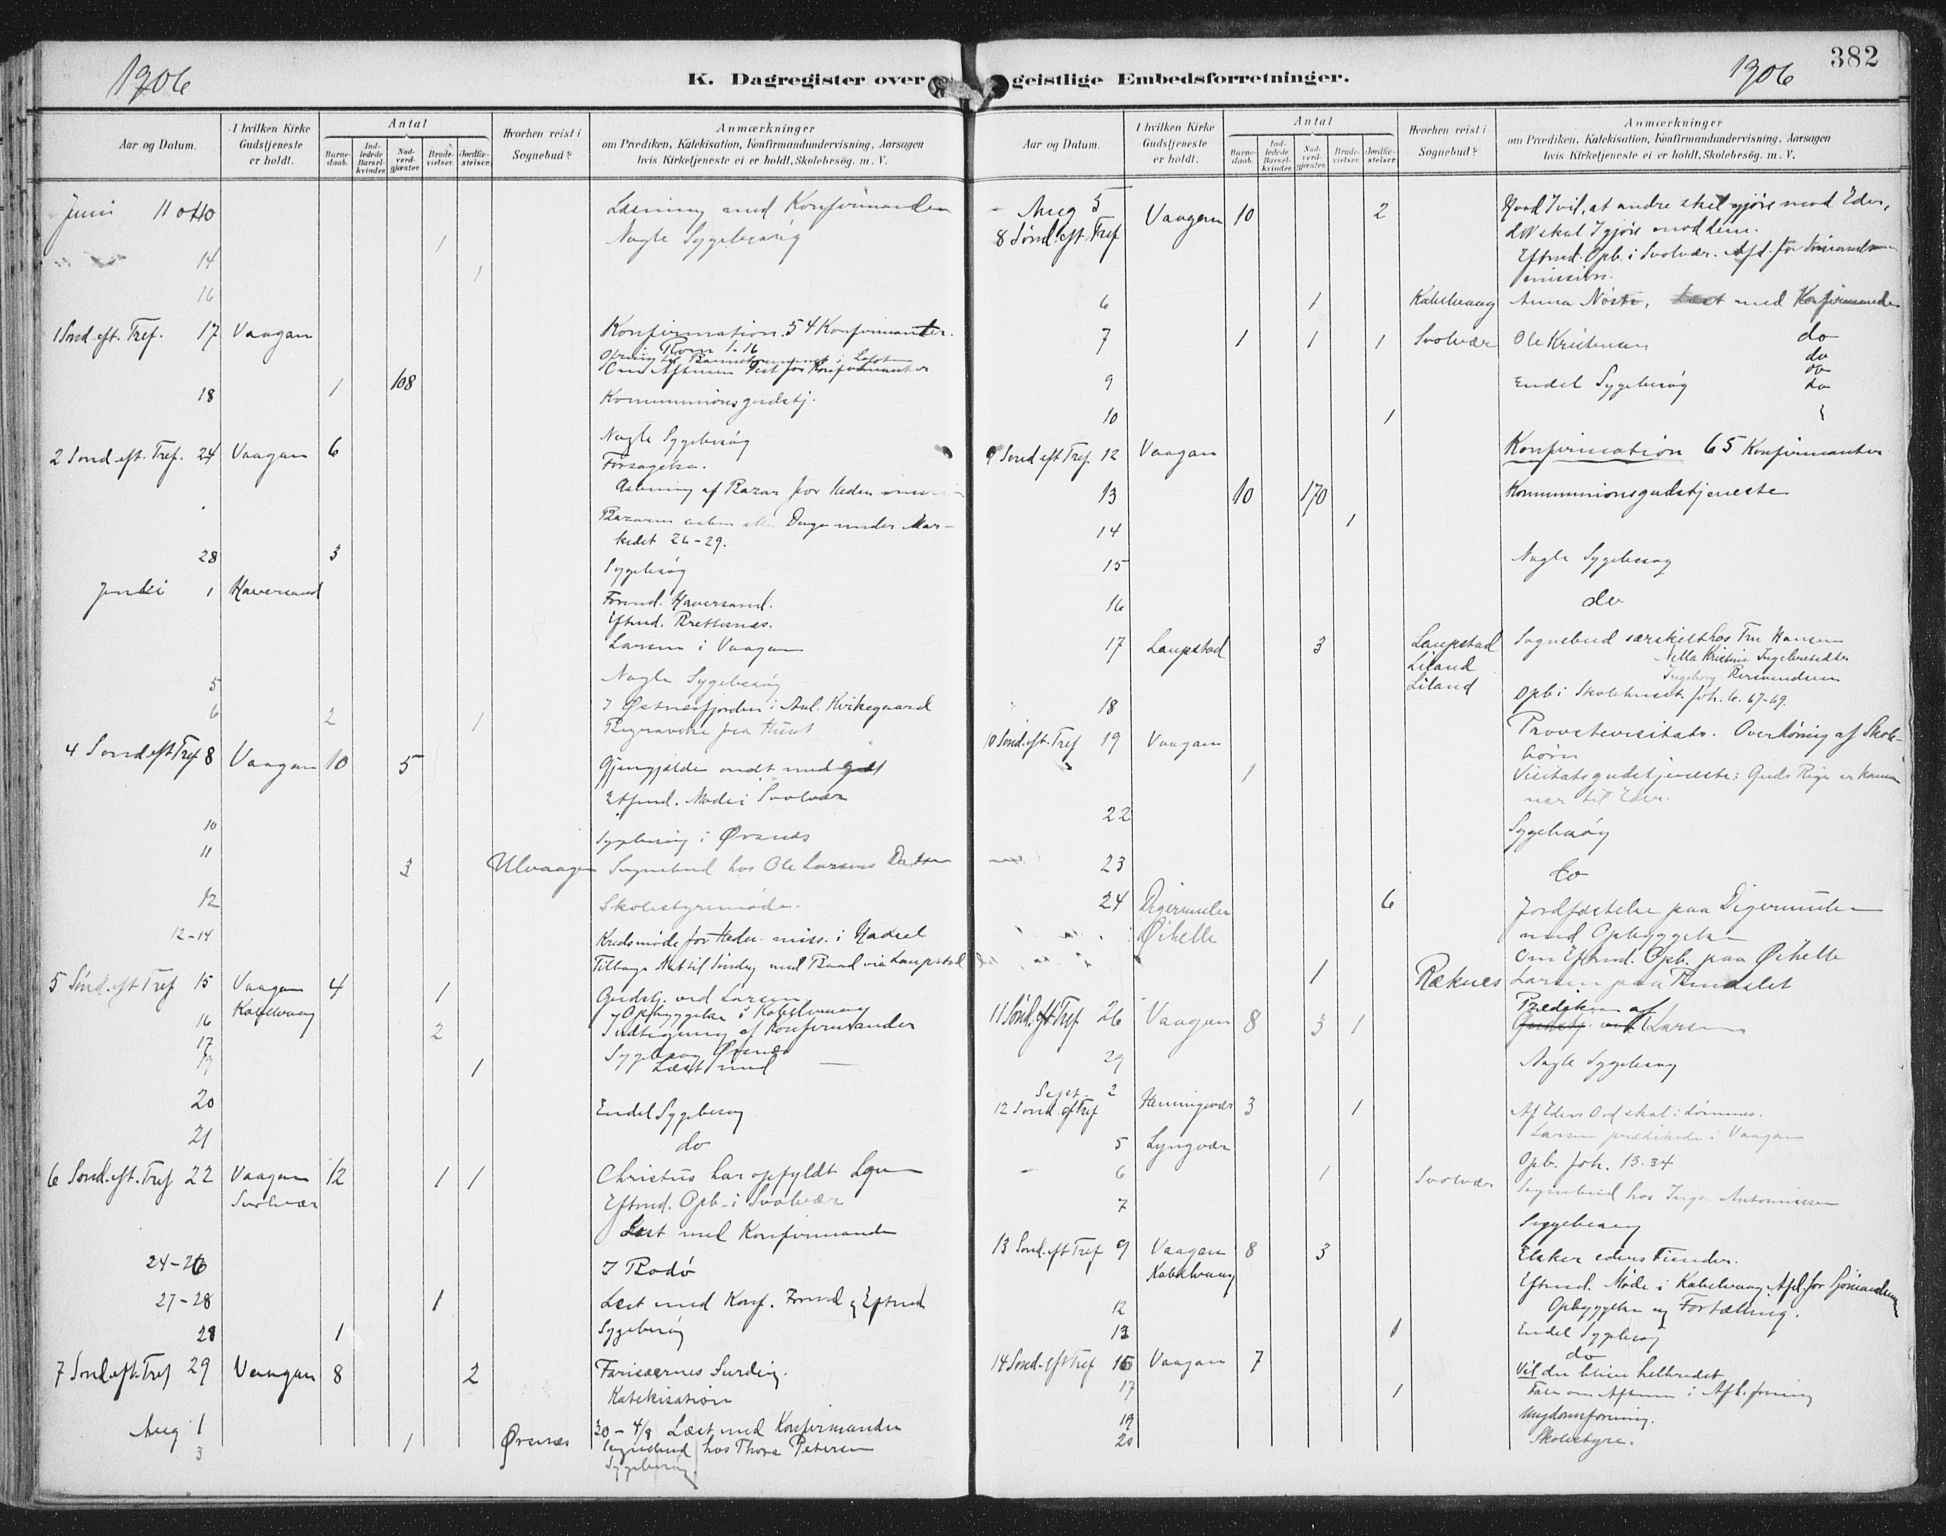 1906
K. Dagregister over geistlige Embedsforretninger.
1906
382
Aar og Datum.
I hvilken Kirke Gudstjeneste er holdt.
Antal
Barnedaab.
Indledede Barselkvinder.
Nadverdgjæster.
Brudevielser.
Jordfæstelser.
Hvorhen reist i Sognebud?
Anmærkninger
om Prædiken, Katekisation, Konfirmandundervisning, Aarsagen
hvis Kirketjeneste ei er holdt, Skolebesøg. m. V.
Juni 11 Læsning med Konfirmanden
1 Nogle Sygebesøg
14 1
16
1 Sønd eft. Tref. 17 Vaagan Konfirmation. 54 Konfirmanter.
Rom 1-16
18 1 108 Kommunionsgudstj.
Nogle Sygebesøg
2 Sønd eft. Tref. 24 Vaagan 6 Forsagelse.
Aabning af Bazar for Heden
Bazaren Dage under Mar-
kedet 26-29.
28 3 Sygebesøg
Juli 1 Haversand Formd. Haversand.
Eftmd. Brettesnæs.
Larsen i Vaagan
5 Nogle Sygebesøg
6 2 1 I Østnesfjorden: Anl. Kirkegaard
Begravelse fra Huset
4 Sønd eft Tref 8 Vaagan 10 5 Gjengjælder ondt med godt
Eftmd. Møde i Svolvær
10 Sygebesøg i Ørsnæs
11 3 Ulvaagen Sognebud hos Ole Larsens
12 Skolestyremøde.
12-14 Kredsmøde for Heden. miss. i Hadsel
Tilbage Nat til Søndag med Baad via Laupstad
5 Sønd. eft Tref 15 Vaagan 4 1 Gudstj. ved Larsen
Kabelvaag Opbyggelse i Kabelvaag
16 2 Indtegning af Konfirmander
17 Sygebesøg Ørsnæs
1 Læst med
20 Endel Sygebesøg
21 do
6 Sønd. eft. Tref 22 Vaagan 12 1 1 Christus har opfyldt Loven
Svolvær Eftmd. Opb. i Svolvær
Læst med Konfirmanden
24-26 I Bodø
27-28 1 Læst med Konf. Formd og Eftmd
28 1 Sygebesøg
7 Sønd. eft. Tref 29 Vaagan 8 2 Farisæernes Surdeig.
Katekisation
Aug 1 30 - 4/8 Læst med Konfirmanden
3 1 Ørsnæs Sognebud hos Thora Petersen
Sygebesøg.
Aar og Datum.
I hvilken Kirke Gudstjeneste er holdt.
Antal
Barnedaab.
Indledede Barselkvinder.
Nadverdgjæster.
Brudevielser.
Jordfæstelser.
Hvorhen reist i Sognebud?
Anmærkninger
om Prædiken, Katekisation, Konfirmandundervisning, Aarsagen
hvis Kirketjeneste ei er holdt, Skolebesög. m. V.
Aug 5 Vaagan 10 2 Hvad I vil, at andre skal gjøre mod Eder,
8 Sønd. eft. Tref det skal I gjøre mod dem.
Eftmd. Opb. i Svolvær. Afd. for Sømands-
mission.
6 1 Kabelvaag Anna med Konfirmander
7 1 1 1 Svolvær Ole Kristensen do
do
9 Endel Sygebesøg do
do
10 1
9 Sønd eft Tref 12 Vaagan Konfirmation 65 Konfirmanter
13 10 170 Kommunionsgudstjeneste
14 1
15 Nogle Sygebesøg
16 do
17 Laupstad 3 Laupstad Sognebud særskilt hos Fru Hansen
Liland
Liland
18 Opb i Skolehuset Joh. 6. 67-69.
10 Sønd. eft. Tref 19 Vaagan Provstevisitats. Overhøring af Skole-
børn
1 Visitatsgudstjeneste: Guds Rige er kommen
nær til Eder.
22 Sygebesøg
23 do
24 Digermulen 6 Jordfæstelse paa Digermulen
Ørhelle med Opbyggelse
Om Eftmd. Opb. paa Ørhelle
1 Ræknes Larsen paa
11 Sønd. eft Tref 26 Vaagan 8 3 1 Prædiken af
Larsen
29 Nogle Sygebesøg
Sept. 2
12 Sønd. eft Tref Henningsvær 3 1 Af Eders Ord skal I dømmes.
Larsen prædikede i Vaagan
5 Lyngvær Opb. Joh. 13.34
6 1 Svolvær Sognebud hos Inga Antonissen
7 Sygebesøg
13 Sønd. eft Tref 9 Vaagan 8 3 Elsker eders Fiender.
Kabelvaag Eftmd. Møde i Kabelvaag Afd. for Sjømandsm
12 Opbyggelse og Fortælling.
13 1 Endel Sygebesøg
do
14 Sønd. eft Tref 16 Vaagan 7 Vil du blive helbredet
17 1 Tale om Aftenen i Afh. foring
19 Ungdomsforening.
20 Skolestyre.